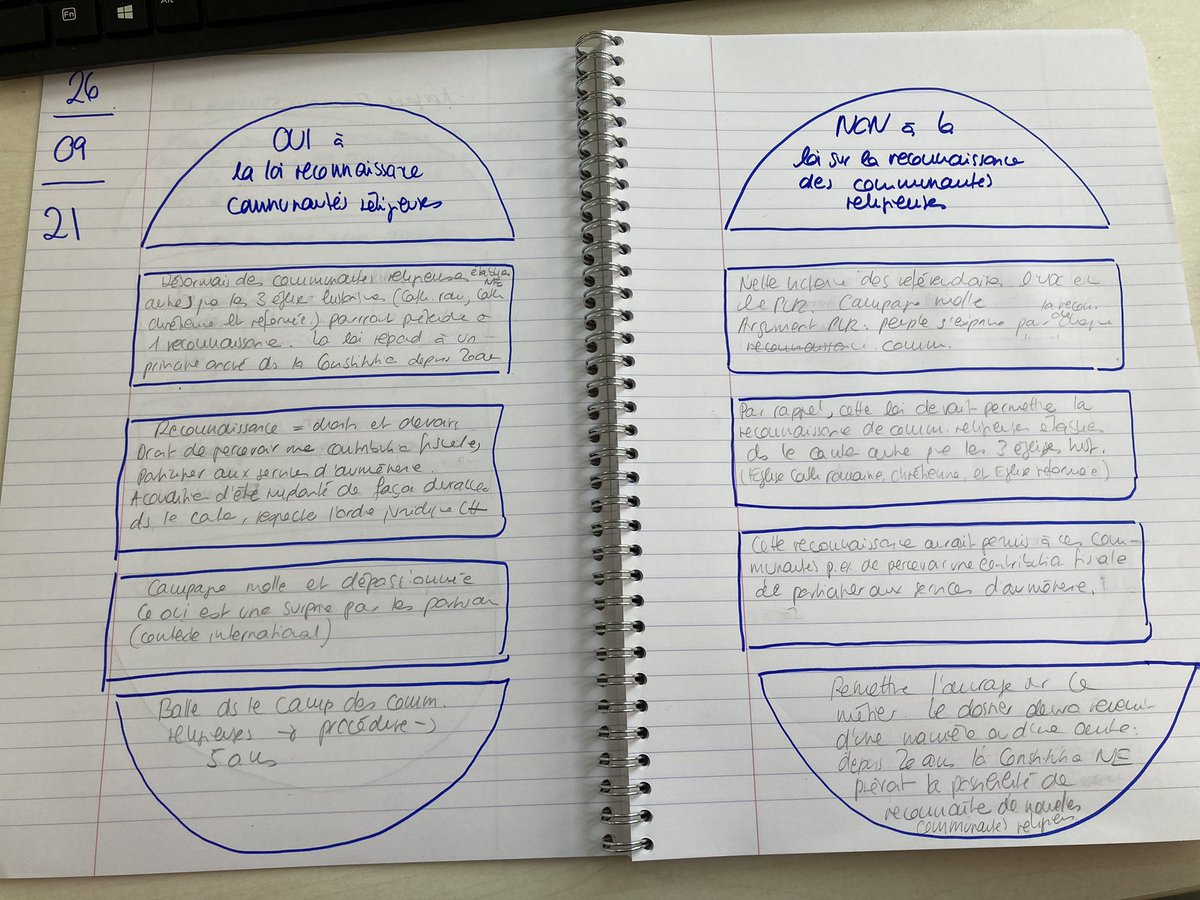 Fn
Alt
26
09
21
OUI à
la loi reconnaissance
communautés religieuses
Désormais des communautés religieuses établies NE
autres que les 3 églises historiques (cath. rom, cath
chrétienne et réformée) pourront prétendre à
1 reconnaissance. La loi répond à un
principe ancré ds la Constitution depuis 20 ans
Reconnaissance = droits et devoirs
Droit de percevoir une contribution fiscale,
participer aux services d'aumônerie.
A condition d'être implanté de façon durable
ds le canton, respecte l'ordre juridique CH
Campagne molle et dépassionnée
Ce oui est une surprise par les partisans
(contexte international)
Balle ds le camp des comm.
religieuses → procédure →
5 ans
NON à la
loi sur la reconnaissance
des communautés
religieuses
Nette victoire des référendaires UDC et
de PLR. Campagne molle
Argument PLR: peuple s'exprime par la recon. de chaque
reconnaissance comm.
Par rappel, cette loi devait permettre la
reconnaissance de comm. religieuses établies
ds le canton autre que les 3 églises hist.
(Eglise Cath romaine, chrétienne, et Eglise réformée)
Cette reconnaissance aurait permis à ces com-
munautés p.ex de percevoir une contribution fiscale
de participer aux services d'aumônerie.
Remettre l'ouvrage sur le
métier. Le dossier devra revenir
d'une manière ou d'une autre:
depuis 20 ans la Constitution NE
prévoit la possibilité de
reconnaître de nouvelles
communautés religieuses